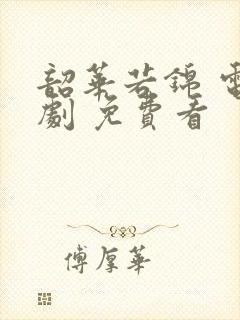 韶華若錦 電
劇 免費看
傅厚華